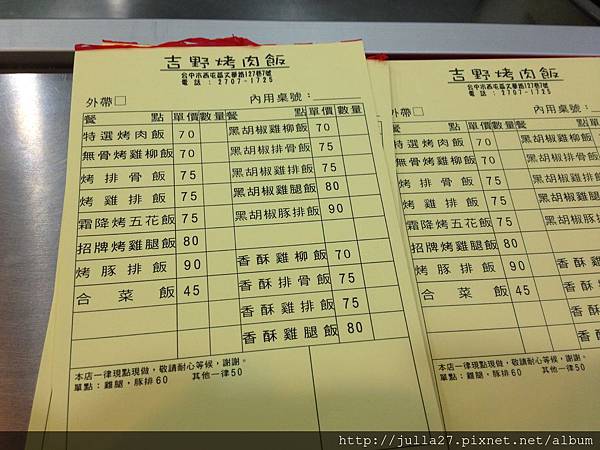 吉野烤肉飯
台中市西屯區文華路127巷7號
電話:2707-1725
外帶□ 內用桌號:
餐點 單價 數量 餐點 單價 數量
特選烤肉飯 70 黑胡椒雞柳飯 70
無骨烤雞柳飯 70 黑胡椒排骨飯 75
烤排骨飯 75 黑胡椒雞排飯 75
烤雞排飯 75 黑胡椒雞腿飯 80
霜降烤五花飯 75 黑胡椒豚排飯 90
招牌烤雞腿飯 80
烤豚排飯 90 香酥雞柳飯 70
合菜飯 45 香酥排骨飯 75
香酥雞排飯 75
香酥雞腿飯 80
本店一律現點現做,敬請耐心等候,謝謝。
單點:雞腿,豚排60 其他一律50
吉野烤肉飯
台中市西屯區文華路127巷7號
電話:2707-1725
外帶□ 內用桌號:
餐點 單價 數量 餐點
特選烤肉飯 70 黑胡椒雞柳飯
無骨烤雞柳飯 70 黑胡椒排骨飯
烤排骨飯 75 黑胡椒雞排飯
烤雞排飯 75 黑胡椒雞腿飯
霜降烤五花飯 75 黑胡椒豚排飯
招牌烤雞腿飯 80
烤豚排飯 90 香酥雞柳飯
合菜飯 45 香酥排骨飯
香酥雞排飯
香酥雞腿飯
本店一律現點現做,敬請耐心等候,謝謝。
單點:雞腿,豚排60 其他一律50
http://julla27.pixnet.net/album